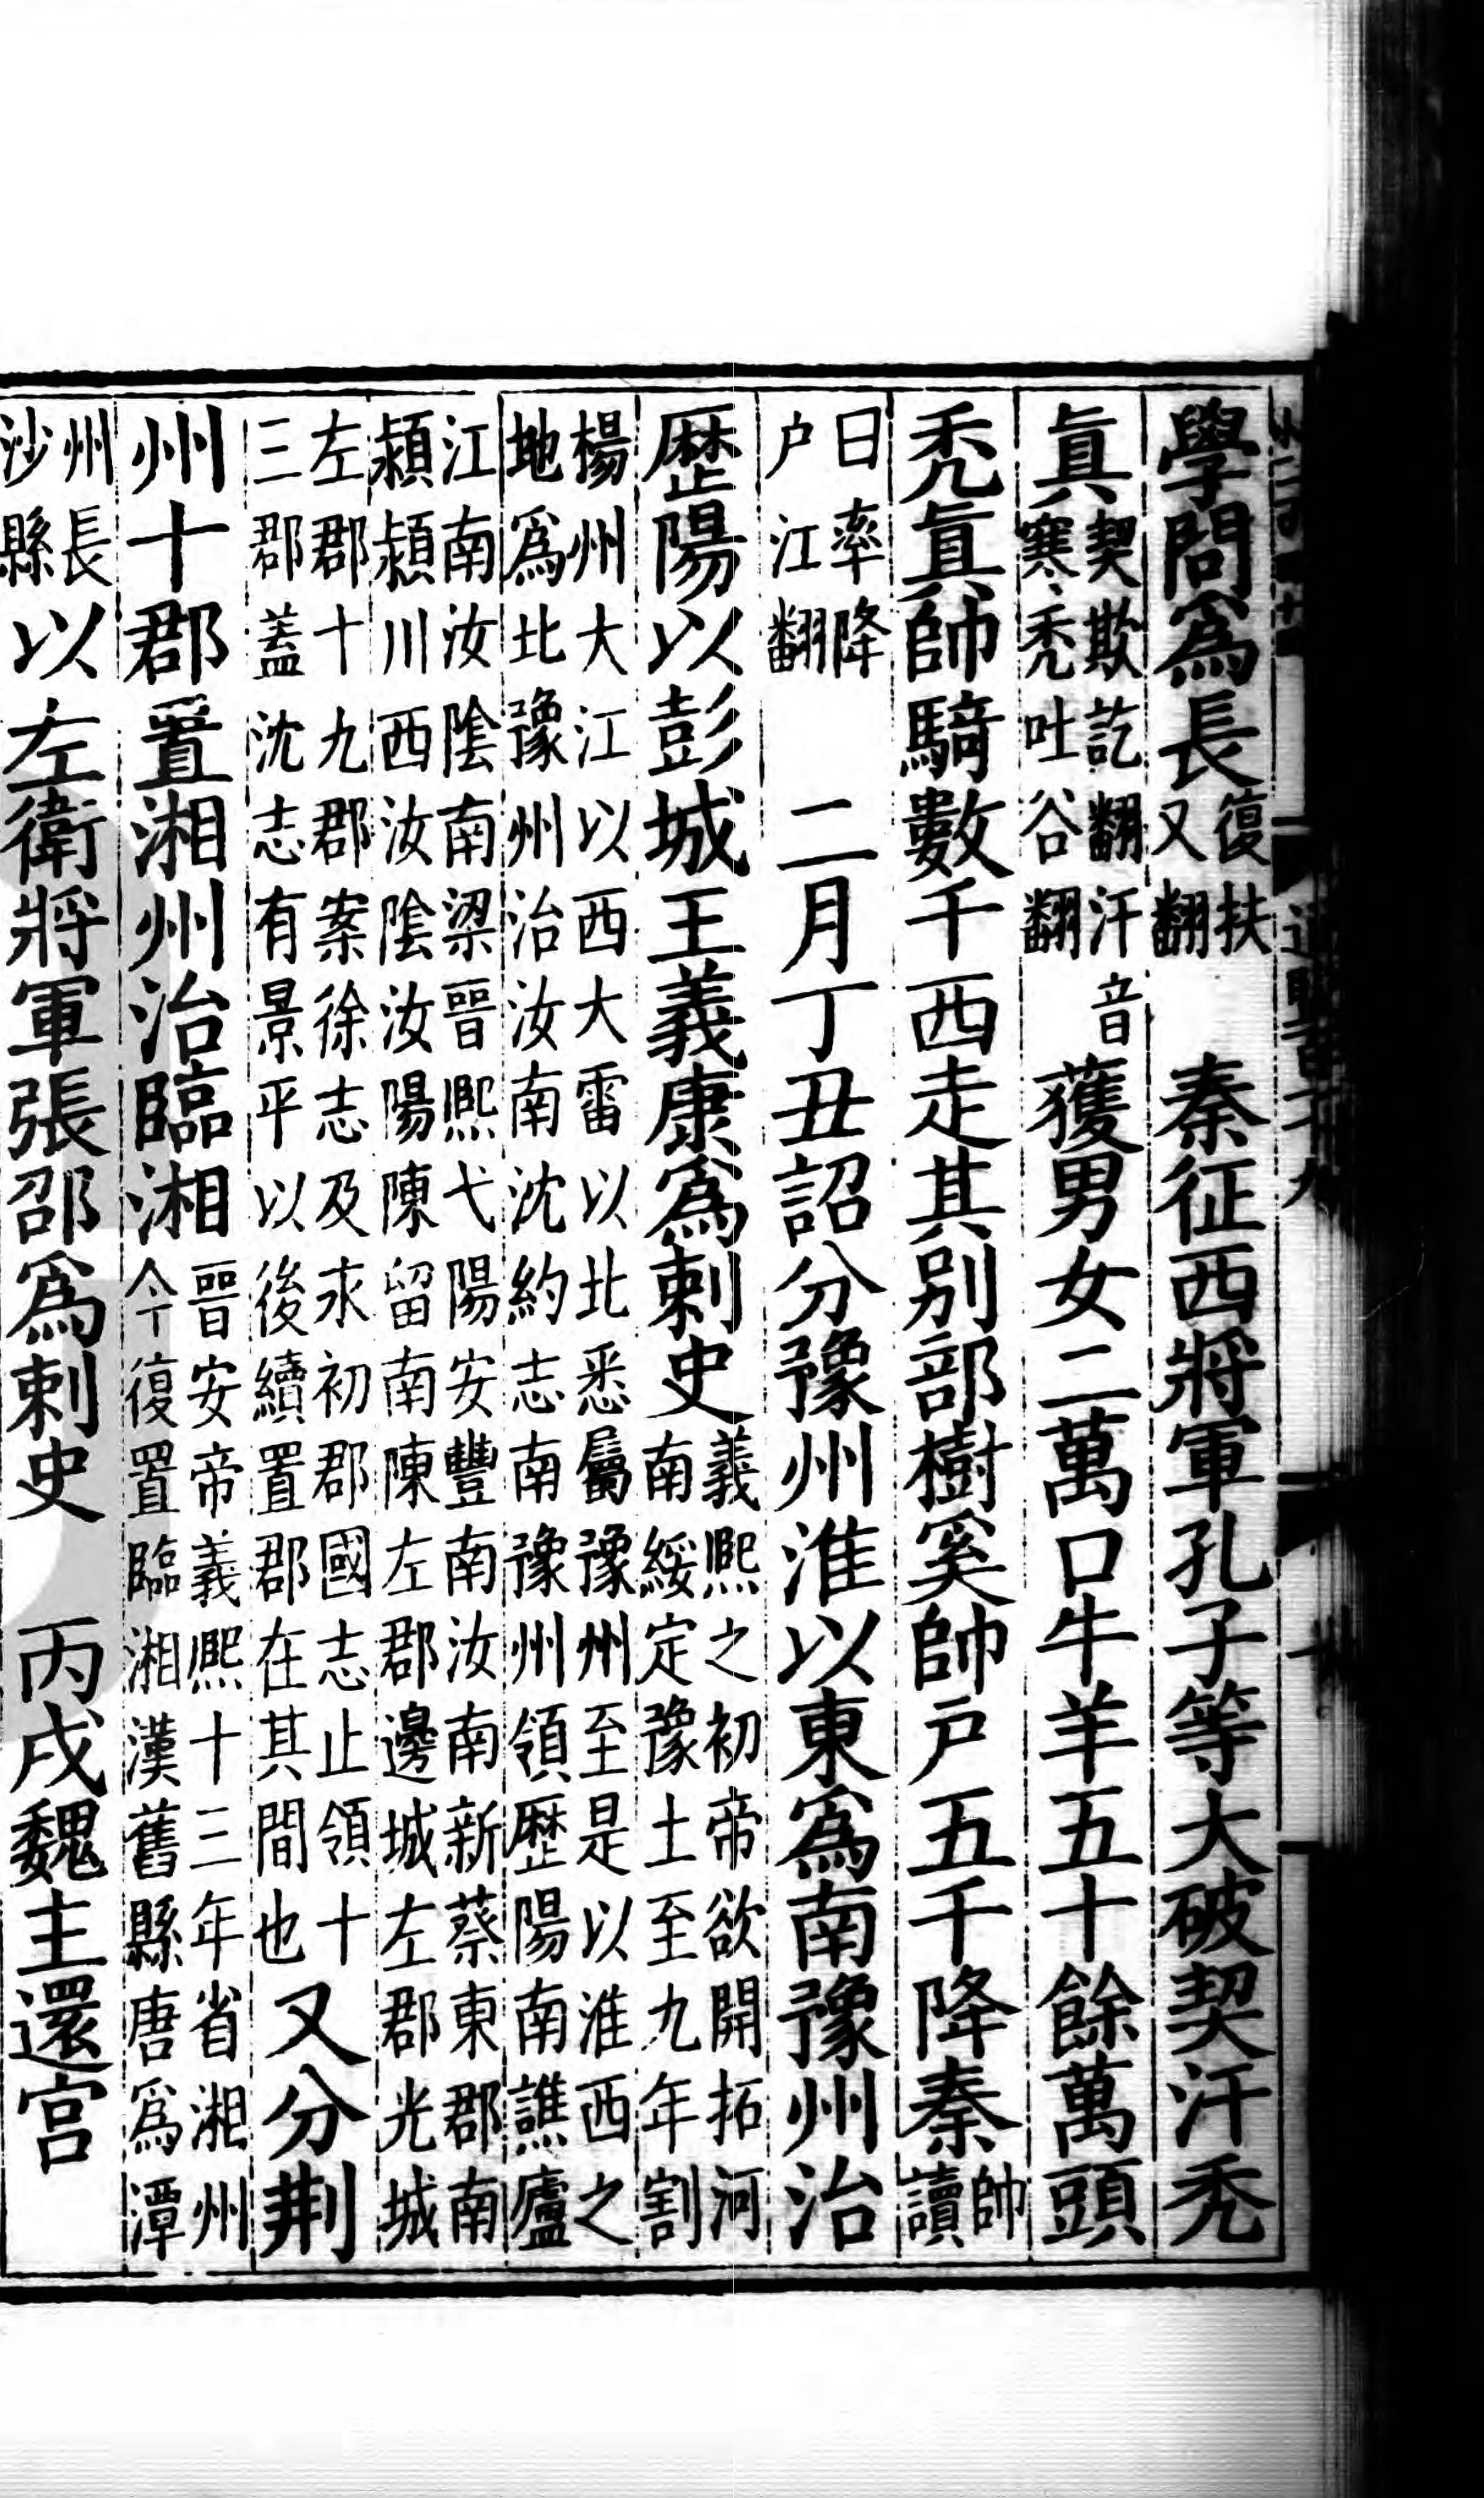 學問爲長復扶又翻　秦征西將軍孔子等大破契汗禿
眞契欺訖翻汗音寒禿吐谷翻獲男女二萬口牛羊五十餘萬頭
禿眞帥騎數千西走其别部樹奚帥戸五千降秦帥讀
曰率降户江翻　二月丁丑詔分豫州淮以東爲南豫州治
歷陽以彭城王義康爲刺史義熙之初帝欲開拓河南綏定豫土至九年割
楊州大江以西大雷以北悉屬豫州至是以淮西之地爲北豫州治汝南沈約志南豫州領歷陽南譙廬
江南汝陰南梁晉熙弋陽安豐南汝南南新蔡東郡南潁潁川西汝陰汝陽陳留南陳左郡邊城左郡光城
左郡十九郡案徐志及永初郡國志止領十三郡蓋沈志有景平以後續置郡在其間也又分荆
州十郡置湘州治臨湘晉安帝義熙十三年省湘州今復置臨湘漢舊縣唐爲潭
州長沙縣以左衛將軍張邵爲刺史　丙戌魏主還宫